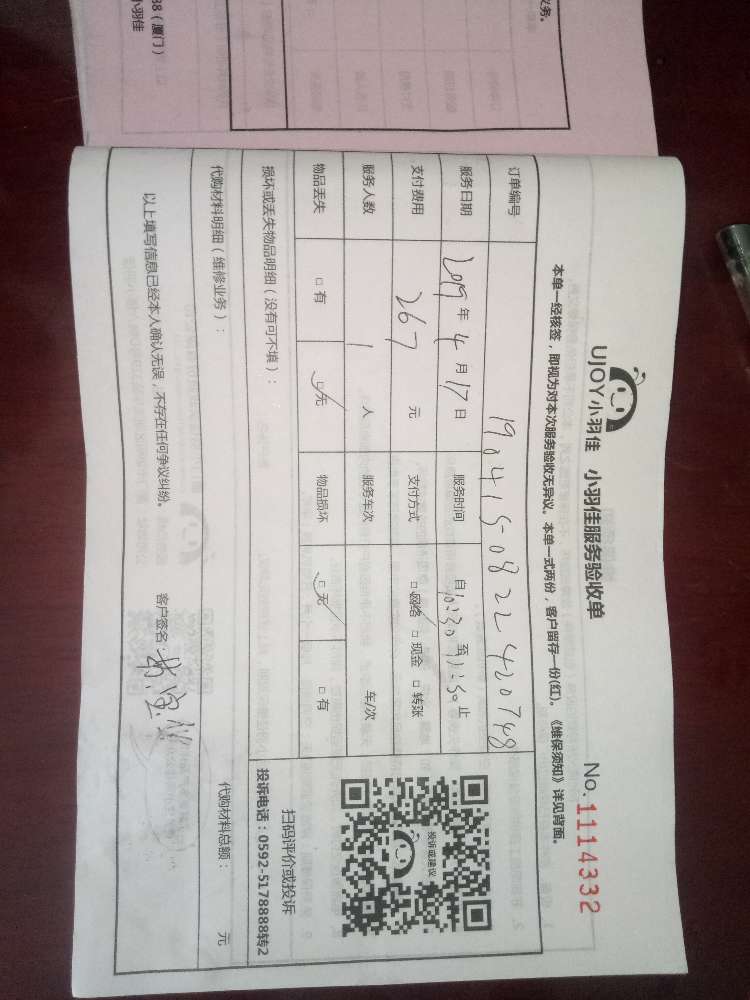 UJOY小羽佳 小羽佳服务验收单
No.1114332
本单一经核签，即视为对本次服务验收无异议。本单一式两份，客户留存一份(红)。《维保须知》详见背面。
订单编号 1904150822420748
服务日期 2019年4月17日 服务时间 自10:30至11:50止
支付费用 267元 支付方式 □网络 □现金 □转账
服务人数 1人 服务车次 车/次
物品丢失 □有 □无 物品损坏 □无 □有
投诉或建议
扫码评价或投诉
投诉电话：0592-5178888转2
损坏或丢失物品明细（没有可不填）：
代购材料明细（维修业务）：
代购材料总额： 元
以上填写信息已经本人确认无误，不存在任何争议纠纷。
客户签名：
38（厦门）
小羽佳